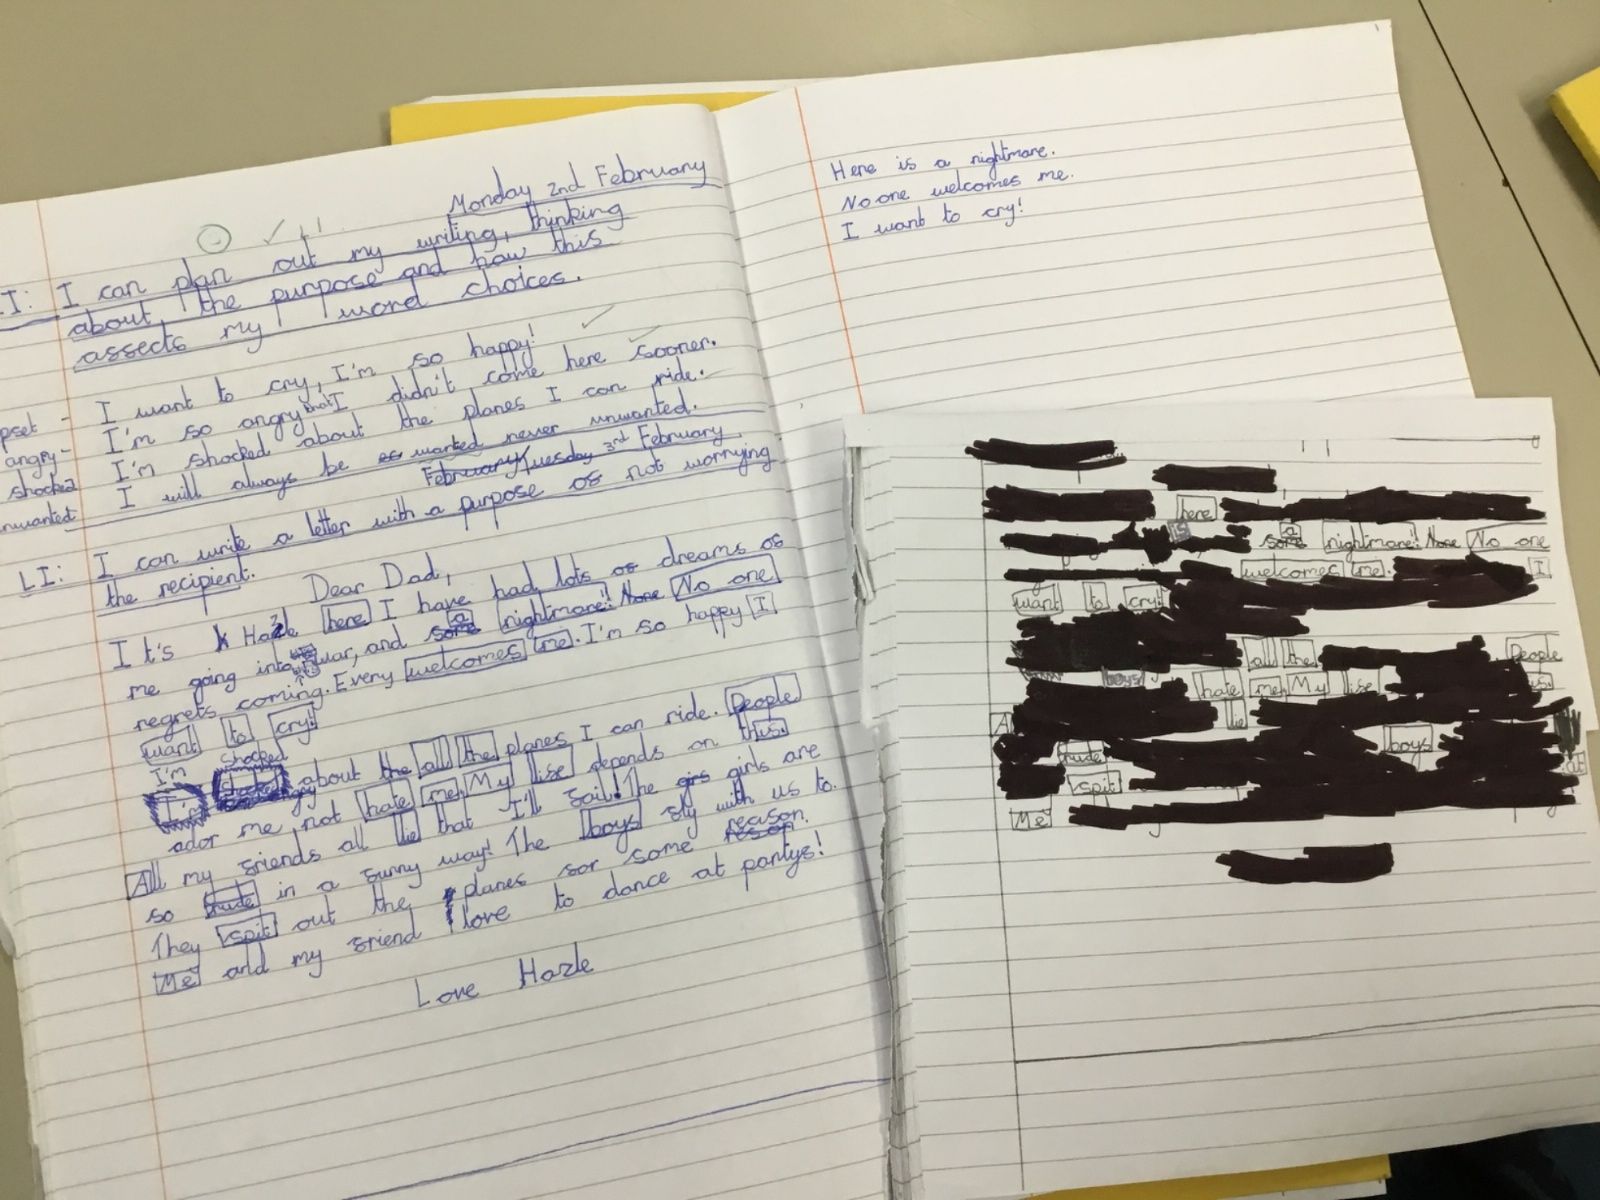 Monday 2nd February
I: I can plan out my writing, thinking
about the purpose and how this
assects my word choices.
pset - I want to cry, I'm so happy!
angry - I'm so angry that I didn't come here sooner.
shocked I'm shocked about the planes I can ride.
nwanted I will always be wanted never unwanted.
February Tuesday 3rd February
LI: I can write a letter with a purpose os not worrying
the recipient.
Dear Dad,
It's Hazle here I have had lots os dreams os
me going into war, and some a nightmare! None No one
regrets coming. Every welcomes me. I'm so happy I
want to cry!
I'm shocked about the all the planes I can ride. People
ador me not hate me, My lise depends on this.
All my sriends all lie that I'll sail! The girs girls are
so rude in a sunny way! The boys sly with us to.
They spit out the planes sor some reson reason.
Me and my sriend love to dance at partys!
Love Hazle
Here is a nightmare.
No one welcomes me.
I want to cry!
here
is some a nightmare! None No one
welcomes me. I
want to cry!
all the People
boys hate me, My lise is.
A lie
rude boys
spit at
Me